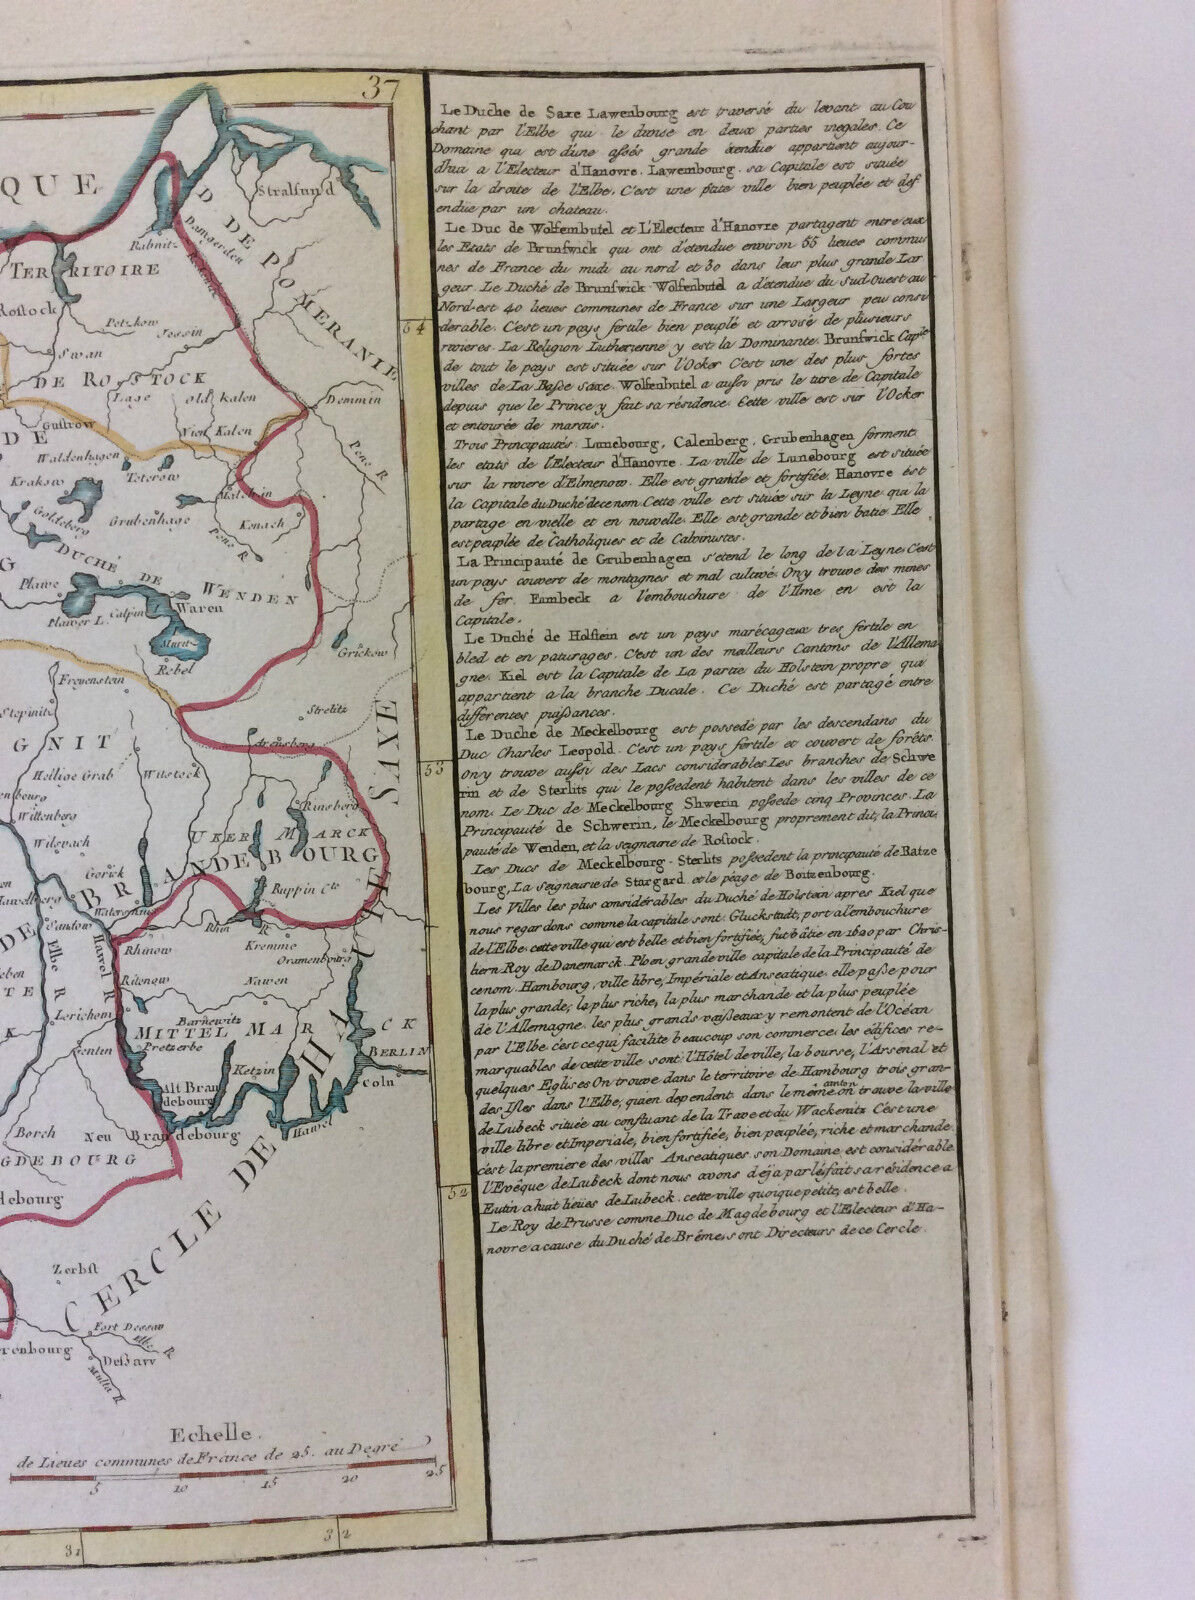 37
QUE
Stralsund
D. DE POMERANIE
Damgarden
Rabnitz
TERRITOIRE
Rostock
Potzkow
Jessin
Swan
54
DE ROSTOCK
Lage
old kalen
Demmin
Gustrow
Nien Kalen
DE
Waldenhagen
Teterow
Pene R
Krakow
Malchin
Goldeberg
Grubenhage
Kniach
Pene R
DUCHÉ DE WENDEN
G
Plawe
Calpin
Waren
Plawer L.
Muret
Grickow
Rebel
Freyenstein
Strelitz
Stepinitz
Arensberg
GNIT
Heilige Grab
Witstock
53
Rinsberg
Wittenberg
UKER MARCK
Wilsvach
Gorick
BRANDEBOURG
Ruppin Cté
Hawelberg
Sandow
Rhinow
Rhin R
Kremme
Oranienbourg
Elbe R
Hawel R
Ratenow
Nawen
Lerichem
Barnewitz
MITTEL MARCK
Genten
Pretzerbe
BERLIN
Ketzin
Coln
Alt Bran
debourg
Borch
Neu Brandebourg
Hawel
GDEBOURG
debourg
52
CERCLE DE HAUTE SAXE
Zerbst
Fort Dessau
Elbe R.
renbourg
Deßaw
Multa R
Echelle.
de Lieues communes de France de 25. au Degré
5 10 15 20 25
31 32
Le Duche de Saxe Lawenbourg est traversé du levant au Cou
chant par l'Elbe qui le divise en deux parties inegales. Ce
Domaine qui est d'une assés grande étendue appartient aujour-
dhui a l'Electeur d'Hanovre. Lawembourg. sa Capitale est située
sur la droite de l'Elbe. C'est une ptite ville bien peuplée et def
endue par un chateau.
Le Duc de Wolfembutel et L'Electeur d'Hanovre partagent entre eux
les Etats de Brunswick qui ont d'étendue environ 55 lieues commu
nes de France du midi au nord et 30 dans leur plus grande Lar
geur. Le Duché de Brunswick Wolfenbutel a d'étendue du Sud-Ouest au
Nord-est 40 lieues communes de France sur une Largeur peu consi
derable. C'est un pays fertile bien peuplé et arrosé de plusieurs
rivieres. La Religion Lutherienne y est la Dominante. Brunswick Caple
de tout le pays est située sur l'Ocker C'est une des plus fortes
villes de La Basse Saxe. Wolfenbutel a aussi pris le titre de Capitale
depuis que le Prince y fait sa résidence. Cette ville est sur l'Ocker
et entourée de marais.
Trois Principautés. Lunebourg, Calenberg, Grubenhagen forment
les etats de l'Electeur d'Hanovre. La ville de Lunebourg est située
sur la riviere d'Elmenow. Elle est grande et fortifiée. Hanovre est
la Capitale du Duché de ce nom. Cette ville est située sur la Leyne qui la
partage en vielle et en nouvelle. Elle est grande et bien batie. Elle
est peuplée de Catholiques et de Calvinistes.
La Principauté de Grubenhagen s'etend le long de la Leyne. C'est
un pays couvert de montagnes et mal cultivé. On y trouve des mines
de fer. Eambeck a l'embouchure de l'Ilme en est la
Capitale.
Le Duché de Holstein est un pays marécageux tres fertile en
bled et en paturages. C'est un des meilleurs Cantons de l'Allema
gne. Kiel est la Capitale de La partie du Holstein propre qui
appartient a la branche Ducale. Ce Duché est partagé entre
differentes puissances.
Le Duché de Meckelbourg est possedé par les descendans du
Duc Charles Leopold. C'est un pays fertile et couvert de forêts
on y trouve aussi des Lacs considerables. Les branches de Schwe
rin et de Sterlits qui le possedent habitent dans les villes de ce
nom. Le Duc de Meckelbourg Shwerin possede cinq Provinces. La
Principauté de Schwerin, le Meckelbourg proprement dit, la Princi
pauté de Wenden, et la seigneurie de Rostock.
Les Ducs de Meckelbourg-Sterlits possedent la principauté de Ratze
bourg, La Seigneurie de Stargard et le péage de Boitzenbourg.
Les Villes les plus considérables du Duché de Holstein apres Kiel que
nous regardons comme la capitale sont. Gluckstadt, port a l'embouchure
de l'Elbe. cette ville qui est belle et bien fortifiée, fut bâtie en 1620 par Chris-
tiern Roy de Danemarck. Ploen grande ville capitale de la Principauté de
ce nom. Hambourg, ville libre, Impériale et Anseatique. elle passe pour
la plus grande, la plus riche, la plus marchande et la plus peuplée
de l'Allemagne. les plus grands vaisseaux y remontent de l'Océan
par l'Elbe. c'est ce qui facilite beaucoup son commerce. les édifices re-
marquables de cette ville sont: l'Hôtel de ville, la bourse, l'Arsenal et
quelques Eglises On trouve dans le territoire de Hambourg trois gran-
des Isles dans l'Elbe, qui en dependent dans le même canton on trouve la ville
de Lubeck située au confluant de la Trave et du Wackenitz C'est une
ville libre et Imperiale, bien fortifiée, bien peuplée, riche et marchande
c'est la premiere des villes Anseatiques son Domaine est considérable
l'Evêque de Lubeck dont nous avons deja parlé, fait sa résidence a
Eutin a huit lieües de Lubeck. cette ville quoique petite, est belle.
Le Roy de Prusse comme Duc de Magdebourg et l'Electeur d'Ha-
novre a cause du Duché de Brême, sont Directeurs de ce Cercle.